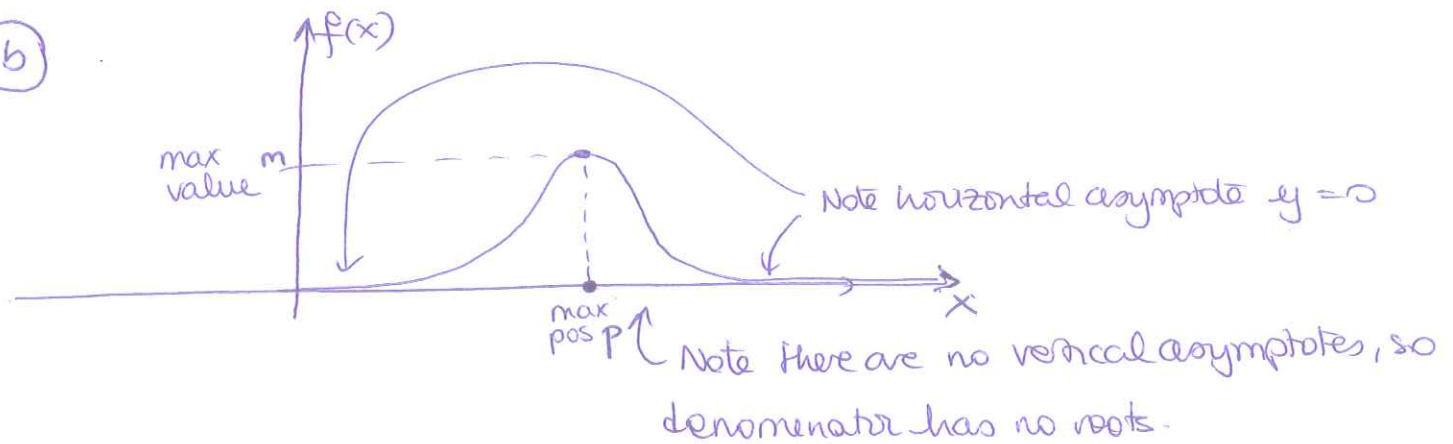 b
f(x)
max m
value
Note horizontal asymptote y = 0
x
max
pos p
Note there are no vertical asymptotes, so
denomenator has no roots.